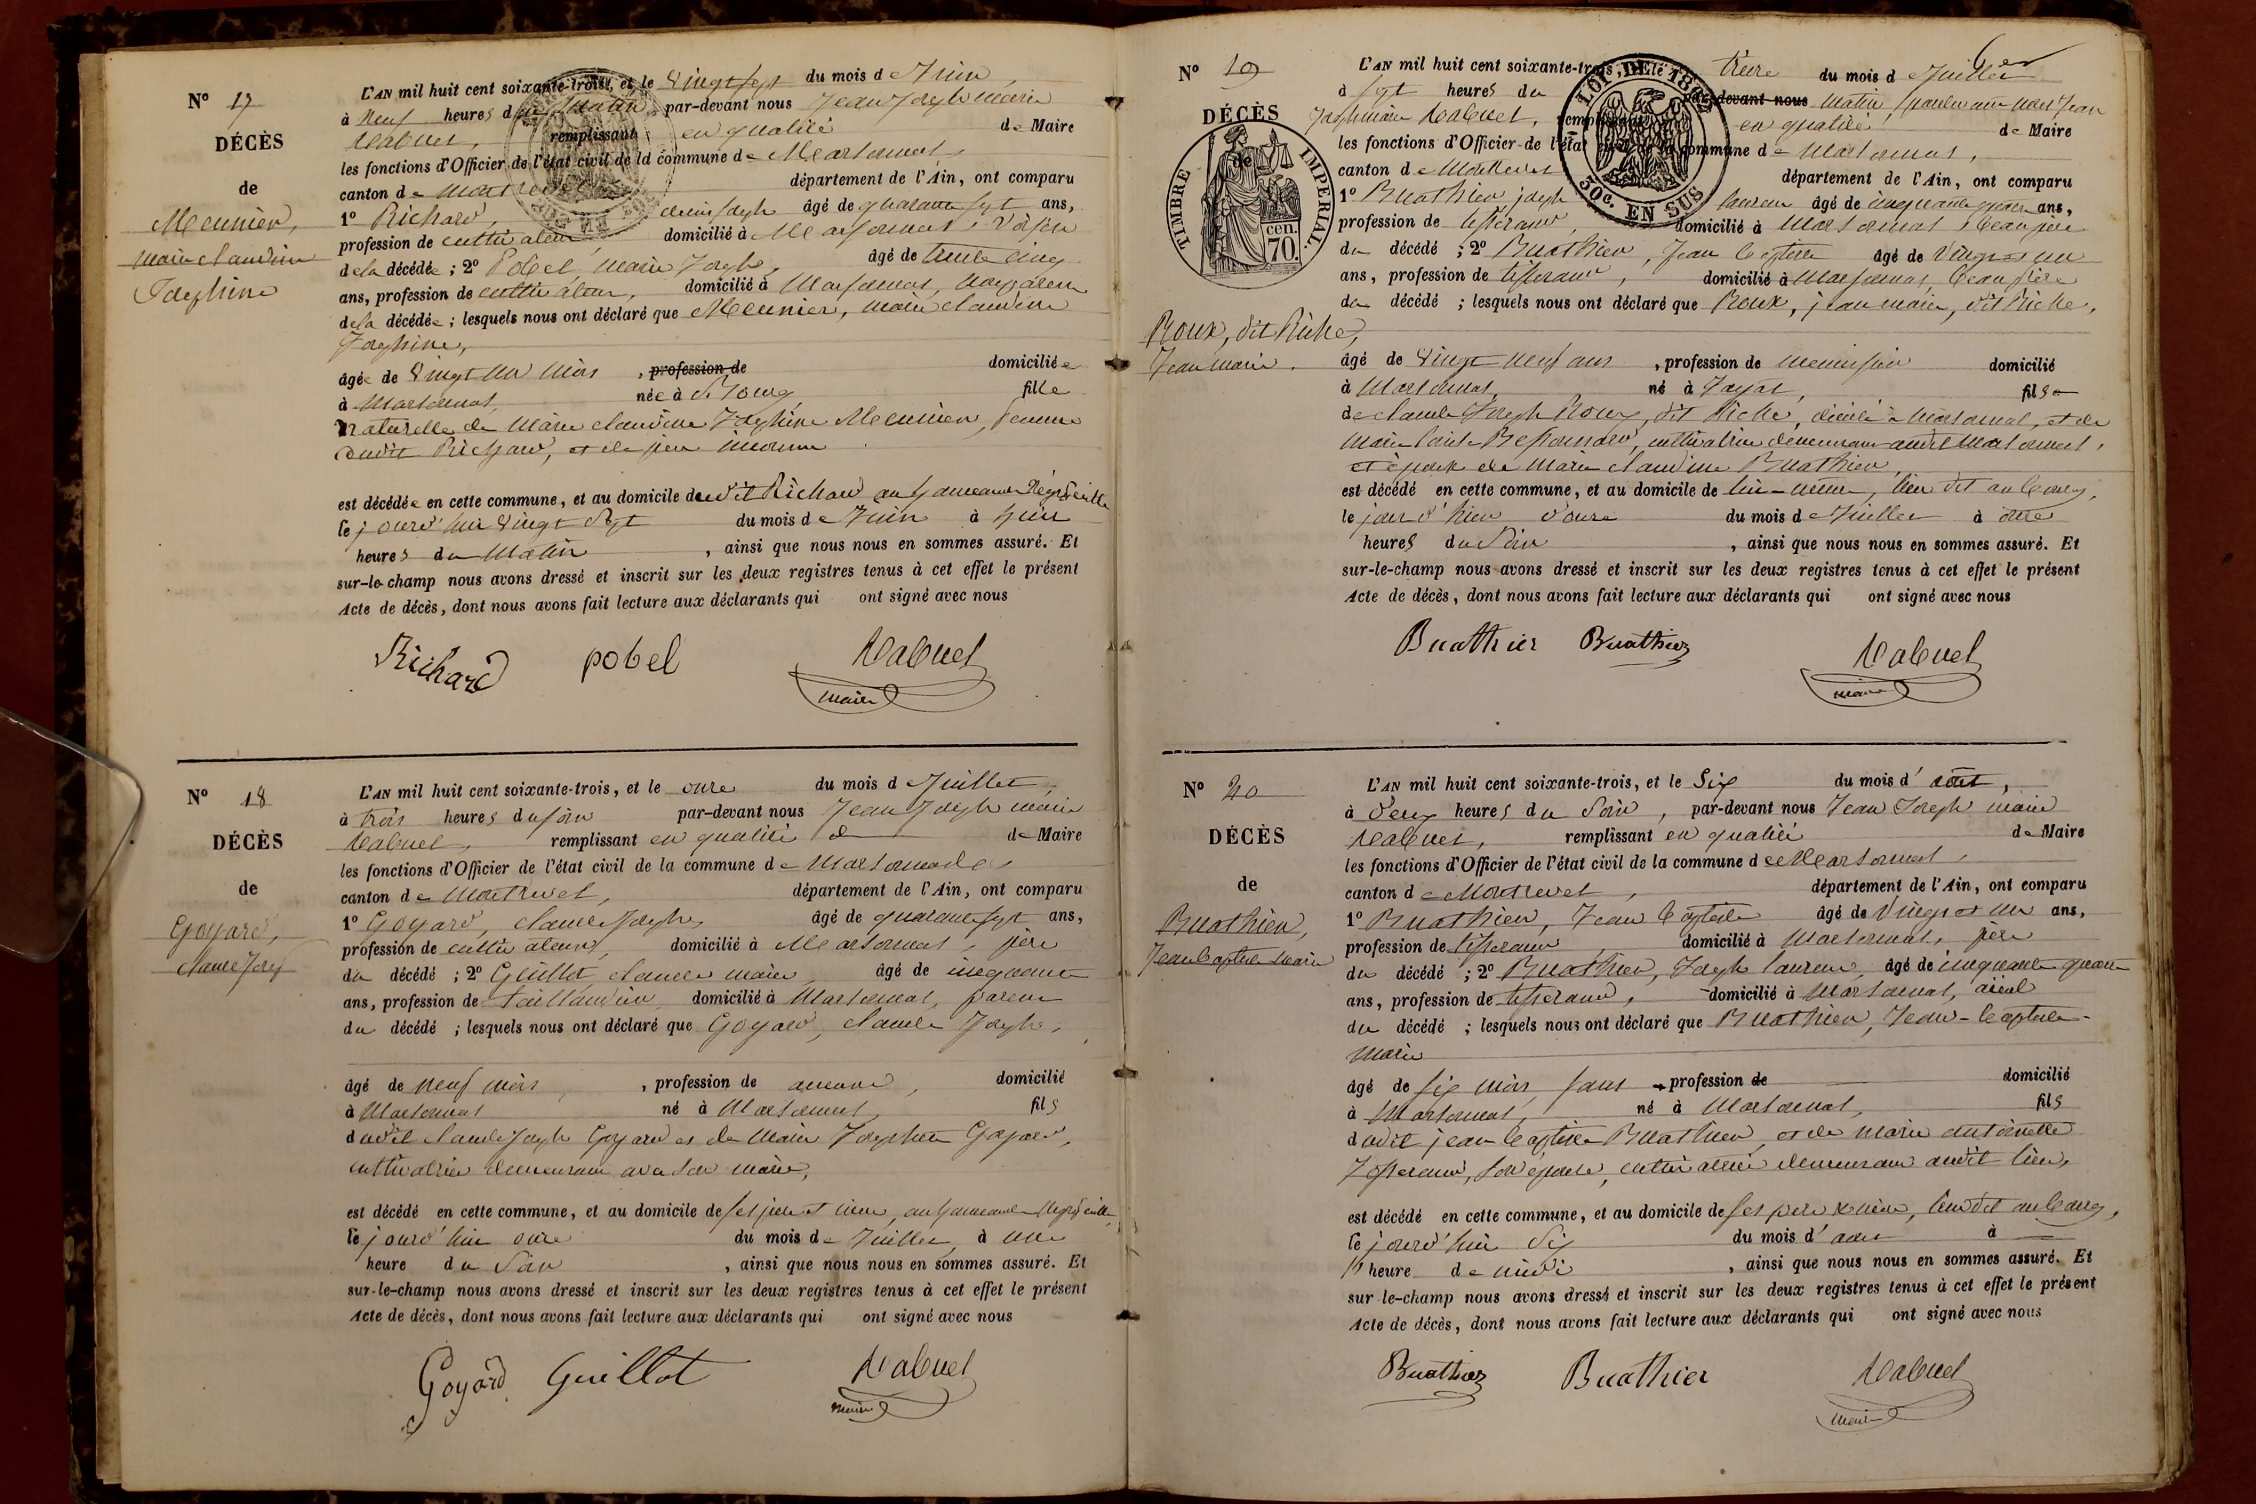 N° 17
DÉCÈS
de
Meunier,
marie claudine
Josephine
L'AN mil huit cent soixante-trois, et le vingt sept du mois de Juin,
à neuf heures du matin, par-devant nous Jean Joseph marie
remplissant en qualité de Maire
les fonctions d'Officier de l'état civil de la commune de Marsonnas,
canton de Montrevel département de l'Ain, ont comparu
1° Richard, denis Joseph âgé de quarante sept ans,
profession de cultivateur domicilié à Marsonnas, voisin
de la décédée ; 2° Pobel, Marie Joseph, âgé de trente cinq
ans, profession de cultivateur, domicilié à Marsonnas,
de la décédée ; lesquels nous ont déclaré que Meunier, marie claudine
Josephine,
âgée de vingt un mois , profession de domiciliée
à Marsonnas, née à Bourg, fille
naturelle de Marie claudine Josephine Meunier, femme
dudit Richard, et de père inconnu
est décédée en cette commune, et au domicile dudit Richard au hameau
le jourd'hui vingt sept du mois de Juin à huit
heures du Matin , ainsi que nous nous en sommes assuré. Et
sur-le-champ nous avons dressé et inscrit sur les deux registres tenus à cet effet le présent
Acte de décès, dont nous avons fait lecture aux déclarants qui ont signé avec nous
Richard pobel
maire
N° 18
DÉCÈS
de
Goyard,
claude Josep
L'AN mil huit cent soixante-trois, et le onze du mois de Juillet,
à trois heures du soir par-devant nous Jean Joseph marie
remplissant en qualité de Maire
les fonctions d'Officier de l'état civil de la commune de Marsonnas
canton de Montrevel, département de l'Ain, ont comparu
1° Goyard, claude Joseph, âgé de quarante sept ans,
profession de cultivateur, domicilié à Marsonnas, père
du décédé ; 2° Guillot, claude marie, âgé de cinquante
ans, profession de taillandier, domicilié à Marsonnas, parent
du décédé ; lesquels nous ont déclaré que Goyard, claude Joseph,
âgé de neuf mois, , profession de aucune, domicilié
à Marsonnas né à Marsonnas, fils
dudit claude Joseph Goyard et de Marie Josephte Goyard,
cultivatrice demeurant avec son mari,
est décédé en cette commune, et au domicile de ses père et mère, au hameau
le jourd'hui onze du mois de Juillet, à une
heure du soir , ainsi que nous nous en sommes assuré. Et
sur-le-champ nous avons dressé et inscrit sur les deux registres tenus à cet effet le présent
Acte de décès, dont nous avons fait lecture aux déclarants qui ont signé avec nous
Goyard Guillot
maire
N° 19
DÉCÈS
de
TIMBRE IMPERIAL
cen.
70.
Roux, dit Riche,
Jean marie.
LOI DE 1862
30c. EN SUS
L'AN mil huit cent soixante-trois, et le treize du mois de Juillet
à sept heures du par-devant nous matin, pardevant nous Jean
Joseph marie remplissant en qualité de Maire
les fonctions d'Officier de l'état civil de la commune de Marsonnas,
canton de Montrevel département de l'Ain, ont comparu
1° Buathier joseph laurent âgé de cinquante quatre ans,
profession de tisserand, domicilié à Marsonnas, beau père
du décédé ; 2° Buathier, Jean baptiste âgé de vingt un
ans, profession de tisserand, domicilié à Marsonnas, beau frère
du décédé ; lesquels nous ont déclaré que Roux, jean marie, dit Riche,
âgé de vingt neuf ans , profession de menuisier domicilié
à Marsonnas, né à Jayat, fils
de claude Joseph Roux, dit Riche, décédé à Marsonnas, et de
Marie cultivatrice demeurant audit Marsonnas,
et époux de Marie claudine Buathier,
est décédé en cette commune, et au domicile de lui-même, lieu dit au bourg,
le jour d'hier douze du mois de Juillet à onze
heures du soir , ainsi que nous nous en sommes assuré. Et
sur-le-champ nous avons dressé et inscrit sur les deux registres tenus à cet effet le présent
Acte de décès, dont nous avons fait lecture aux déclarants qui ont signé avec nous
Buathier Buathier
maire
N° 20
DÉCÈS
de
Buathier,
Jean baptiste marie
L'AN mil huit cent soixante-trois, et le six du mois d'août,
à deux heures du soir, par-devant nous Jean Joseph marie
remplissant en qualité de Maire
les fonctions d'Officier de l'état civil de la commune de Marsonnas,
canton de Montrevel, département de l'Ain, ont comparu
1° Buathier, Jean baptiste âgé de vingt un ans,
profession de tisserand, domicilié à Marsonnas, père
du décédé ; 2° Buathier, Joseph laurent, âgé de cinquante quatre
ans, profession de tisserand, domicilié à Marsonnas, aieul
du décédé ; lesquels nous ont déclaré que Buathier, Jean-baptiste-
marie
âgé de six mois, sans profession de domicilié
à Marsonnas, né à Marsonnas, fils
dudit jean baptiste Buathier, et de marie antoinette
son épouse, cultivatrice demeurant audit lieu,
est décédé en cette commune, et au domicile de ses père & mère, lieu dit au bourg,
le jourd'hui six du mois d'août à
heure de midi , ainsi que nous nous en sommes assuré. Et
sur-le-champ nous avons dressé et inscrit sur les deux registres tenus à cet effet le présent
Acte de décès, dont nous avons fait lecture aux déclarants qui ont signé avec nous
Buathier Buathier
maire